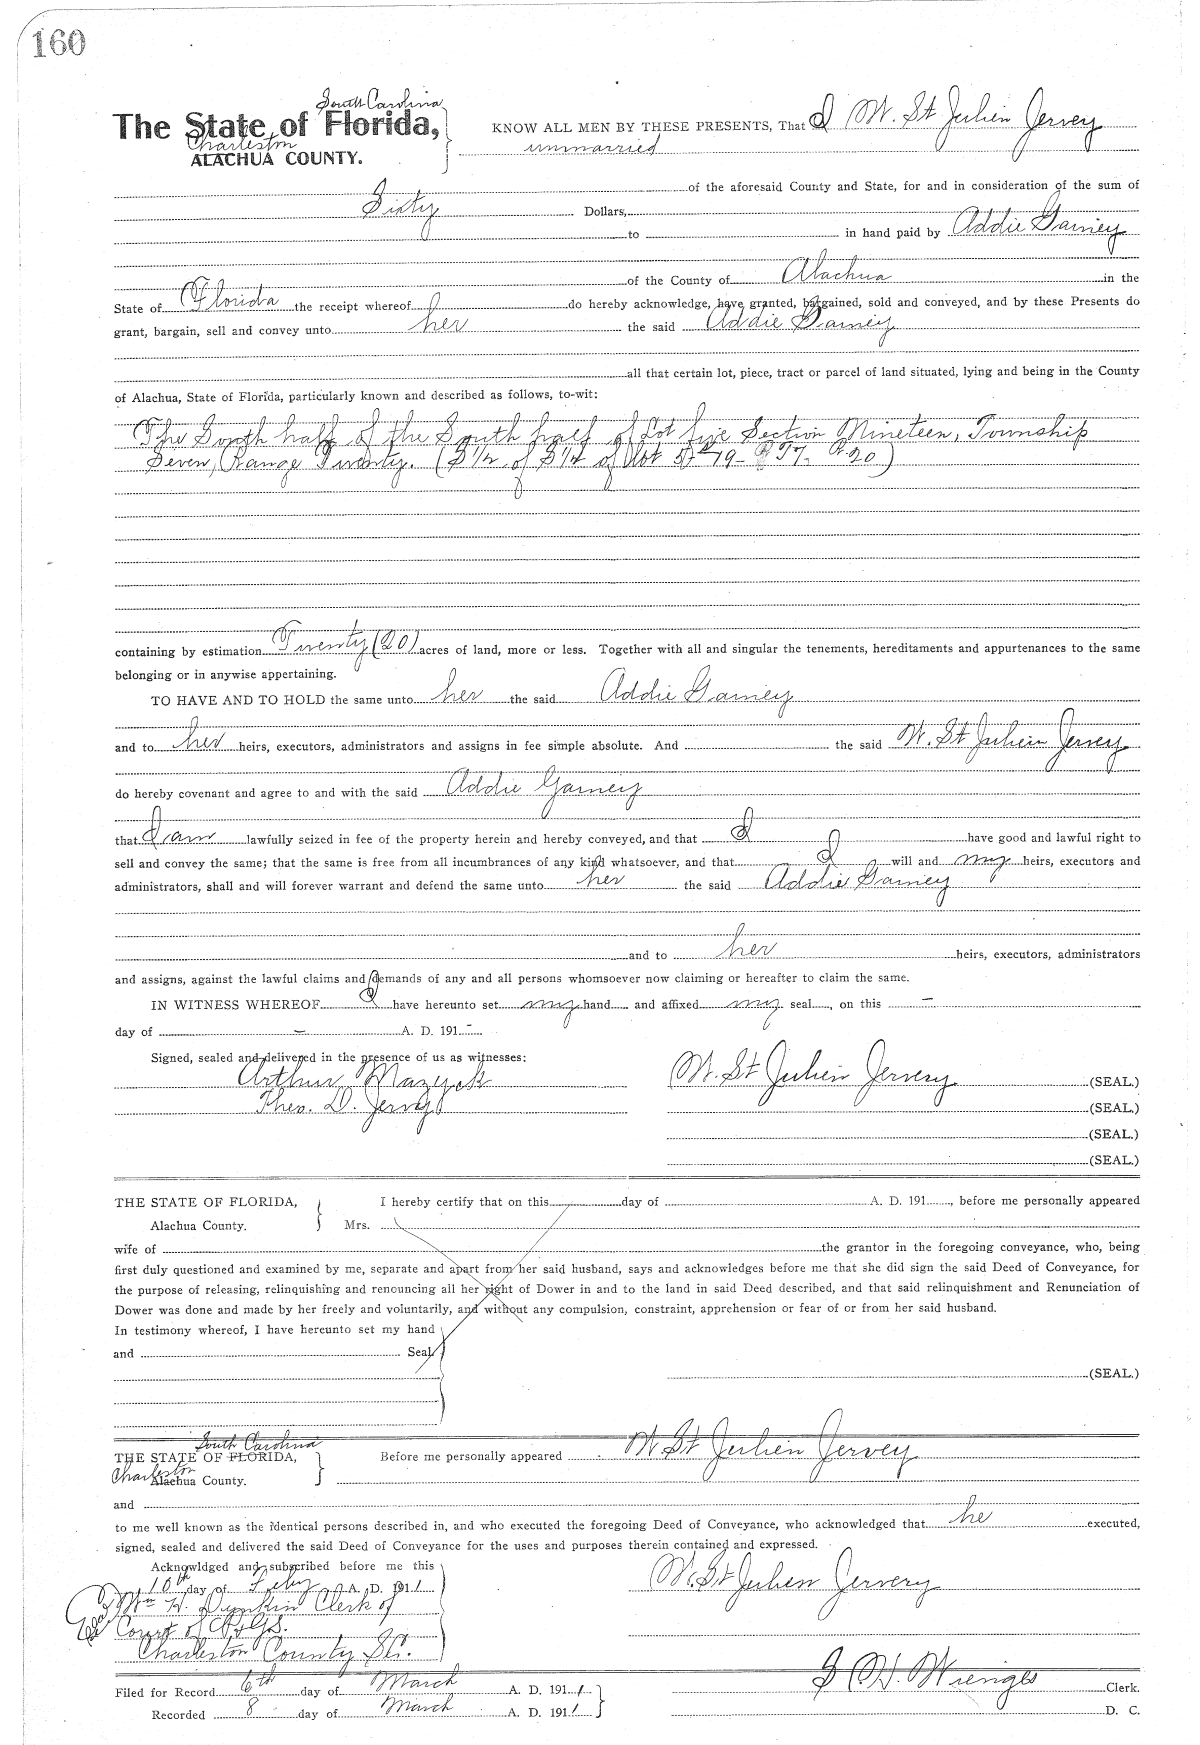 160
South Carolina
The State of Florida,
Charleston
ALACHUA COUNTY.
KNOW ALL MEN BY THESE PRESENTS, That I W. St Julien Jervey
unmarried
of the aforesaid County and State, for and in consideration of the sum of
Sixty Dollars,
to in hand paid by Addie Gainey
of the County of Alachua in the
State of Florida the receipt whereof do hereby acknowledge, have granted, bargained, sold and conveyed, and by these Presents do
grant, bargain, sell and convey unto her the said Addie Gainey
all that certain lot, piece, tract or parcel of land situated, lying and being in the County
of Alachua, State of Florida, particularly known and described as follows, to-wit:
The South half of the South half of Lot five Section Nineteen, Township
Seven, Range Twenty. (S 1/2 of S 1/2 of Lot 5, 19- T7- R 20)
containing by estimation Twenty (20) acres of land, more or less. Together with all and singular the tenements, hereditaments and appurtenances to the same
belonging or in anywise appertaining.
TO HAVE AND TO HOLD the same unto her the said Addie Gainey
and to her heirs, executors, administrators and assigns in fee simple absolute. And the said W. St Julien Jervey
do hereby covenant and agree to and with the said Addie Gainey
that I am lawfully seized in fee of the property herein and hereby conveyed, and that I have good and lawful right to
sell and convey the same; that the same is free from all incumbrances of any kind whatsoever, and that I will and my heirs, executors and
administrators, shall and will forever warrant and defend the same unto her the said Addie Gainey
and to her heirs, executors, administrators
and assigns, against the lawful claims and demands of any and all persons whomsoever now claiming or hereafter to claim the same.
IN WITNESS WHEREOF I have hereunto set my hand and affixed my seal, on this –
day of – A. D. 191 -
Signed, sealed and delivered in the presence of us as witnesses:
Arthur Mazyck W. St Julien Jervery (SEAL.)
Theo. D. Jervey (SEAL.)
(SEAL.)
(SEAL.)
THE STATE OF FLORIDA, I hereby certify that on this day of A. D. 191 , before me personally appeared
Alachua County. Mrs.
wife of the grantor in the foregoing conveyance, who, being
first duly questioned and examined by me, separate and apart from her said husband, says and acknowledges before me that she did sign the said Deed of Conveyance, for
the purpose of releasing, relinquishing and renouncing all her right of Dower in and to the land in said Deed described, and that said relinquishment and Renunciation of
Dower was done and made by her freely and voluntarily, and without any compulsion, constraint, apprehension or fear of or from her said husband.
In testimony whereof, I have hereunto set my hand
and Seal
(SEAL.)
South Carolina
THE STATE OF FLORIDA, Before me personally appeared W. St Julien Jervey
Charleston
Alachua County.
and
to me well known as the identical persons described in, and who executed the foregoing Deed of Conveyance, who acknowledged that he executed,
signed, sealed and delivered the said Deed of Conveyance for the uses and purposes therein contained and expressed.
Acknowldged and subscribed before me this
10th day of Feby A. D. 1911 W. St Julien Jervery
Wm W. Dunkin Clerk of
Court of C.P. & G.S.
Charleston County S.C.
Filed for Record 6th day of March A. D. 191 1 S. H. Wienges Clerk.
Recorded 8 day of March A. D. 191 1 D. C.